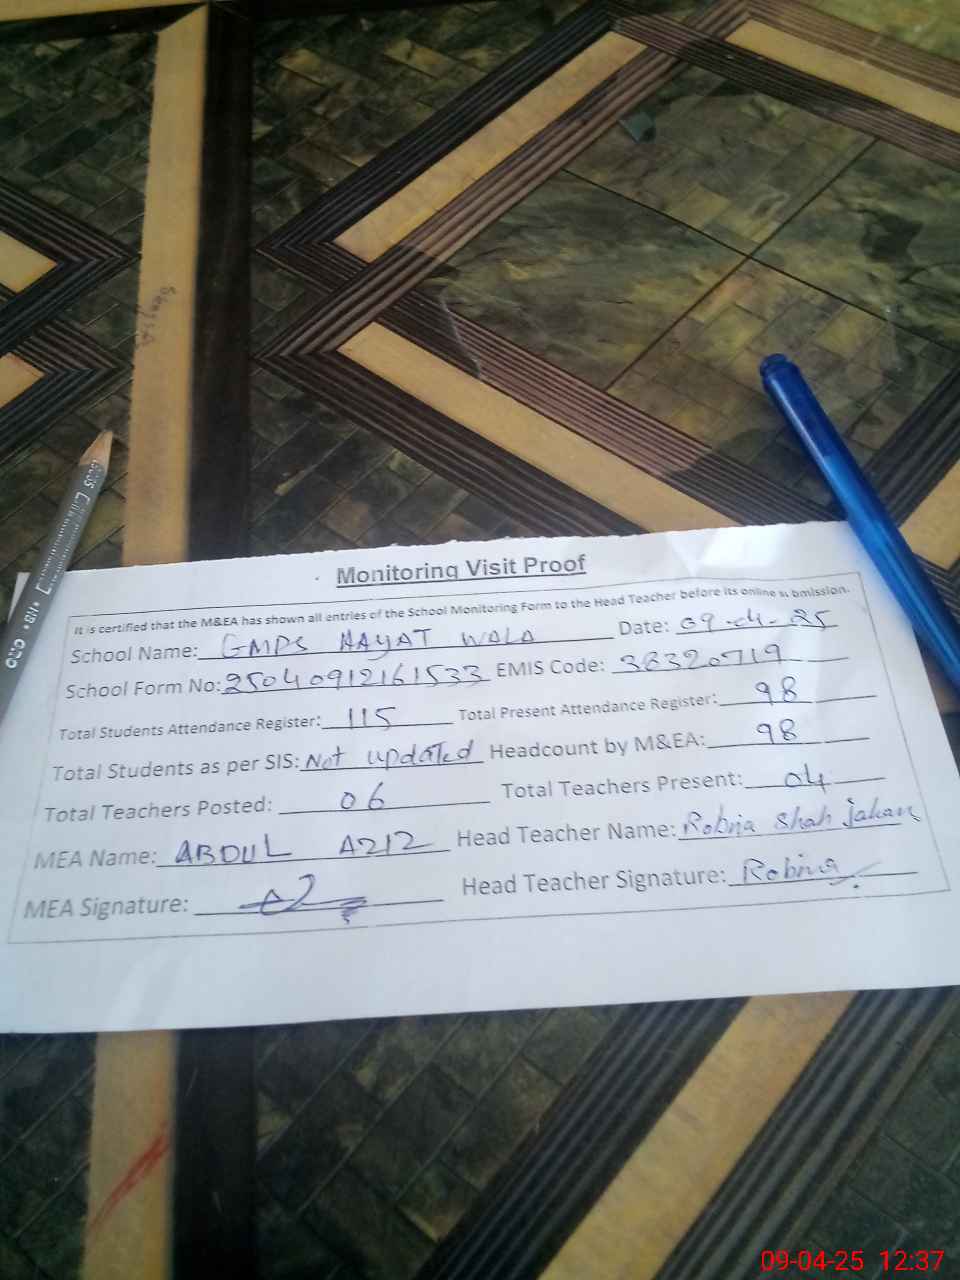 Monitoring Visit Proof
It is certified that the M&EA has shown all entries of the School Monitoring Form to the Head Teacher before its online submission.
School Name: GMPS HAYAT WALA Date: 09-04-25
School Form No: 25040912161533 EMIS Code: 38320719
Total Students Attendance Register: 115 Total Present Attendance Register: 98
Total Students as per SIS: Not updated Headcount by M&EA: 98
Total Teachers Posted: 06 Total Teachers Present: 04
MEA Name: ABDUL AZIZ Head Teacher Name: Robina Shah Jahan
MEA Signature: Head Teacher Signature: Robina
09-04-25 12:37